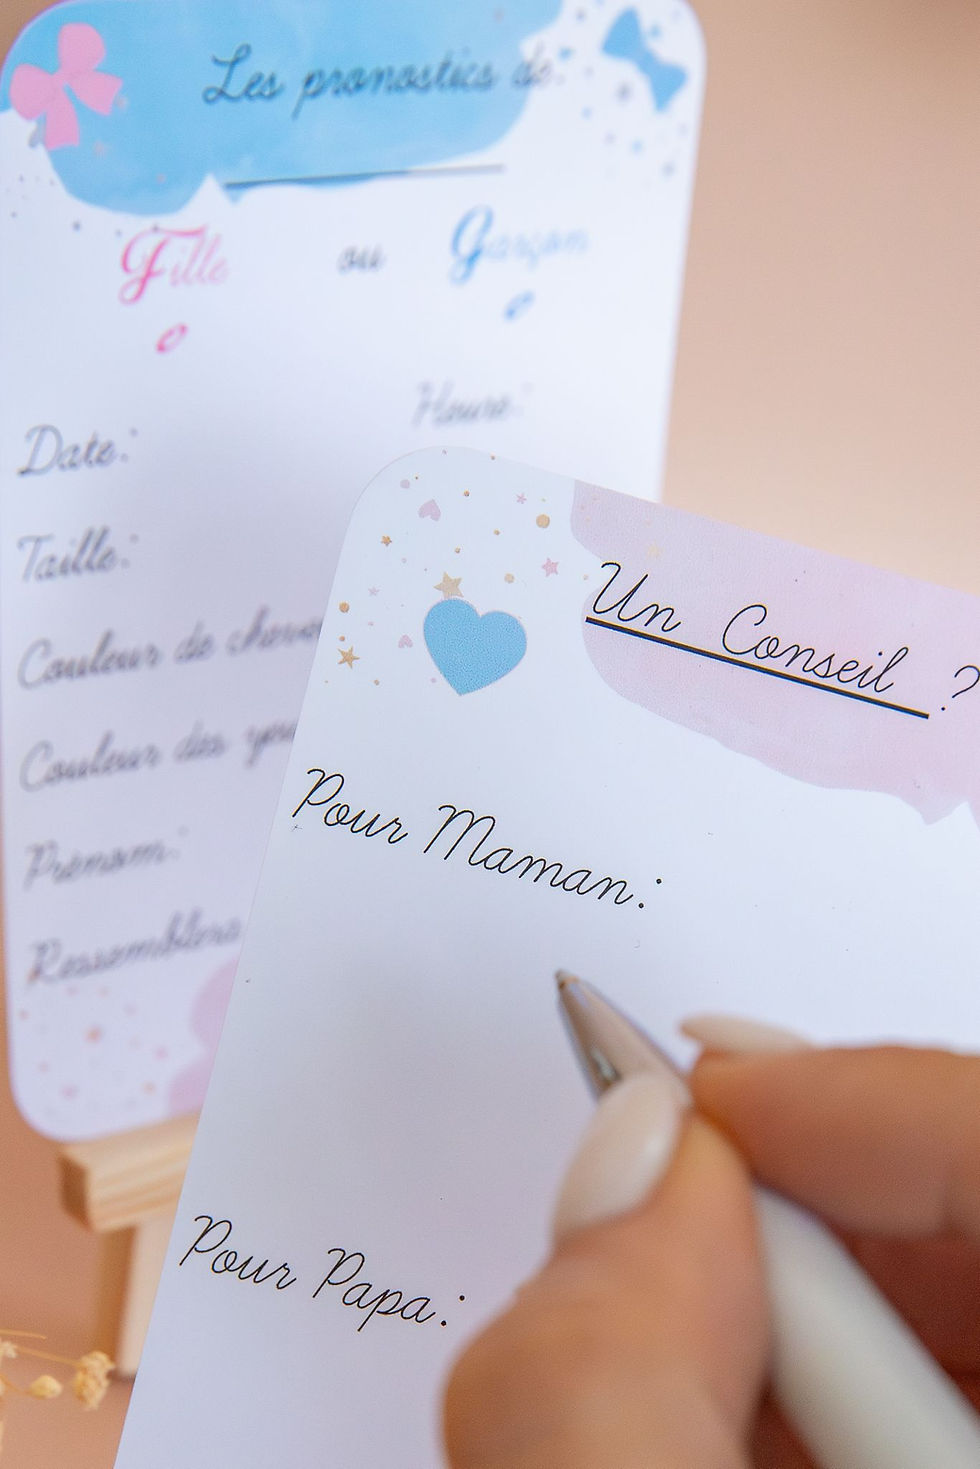 Les pronostics de:
Fille ou Garçon
Heure:
Date:
Taille:
Couleur de
Couleur des
Prénom:
Un Conseil ?
Pour Maman:
Pour Papa: